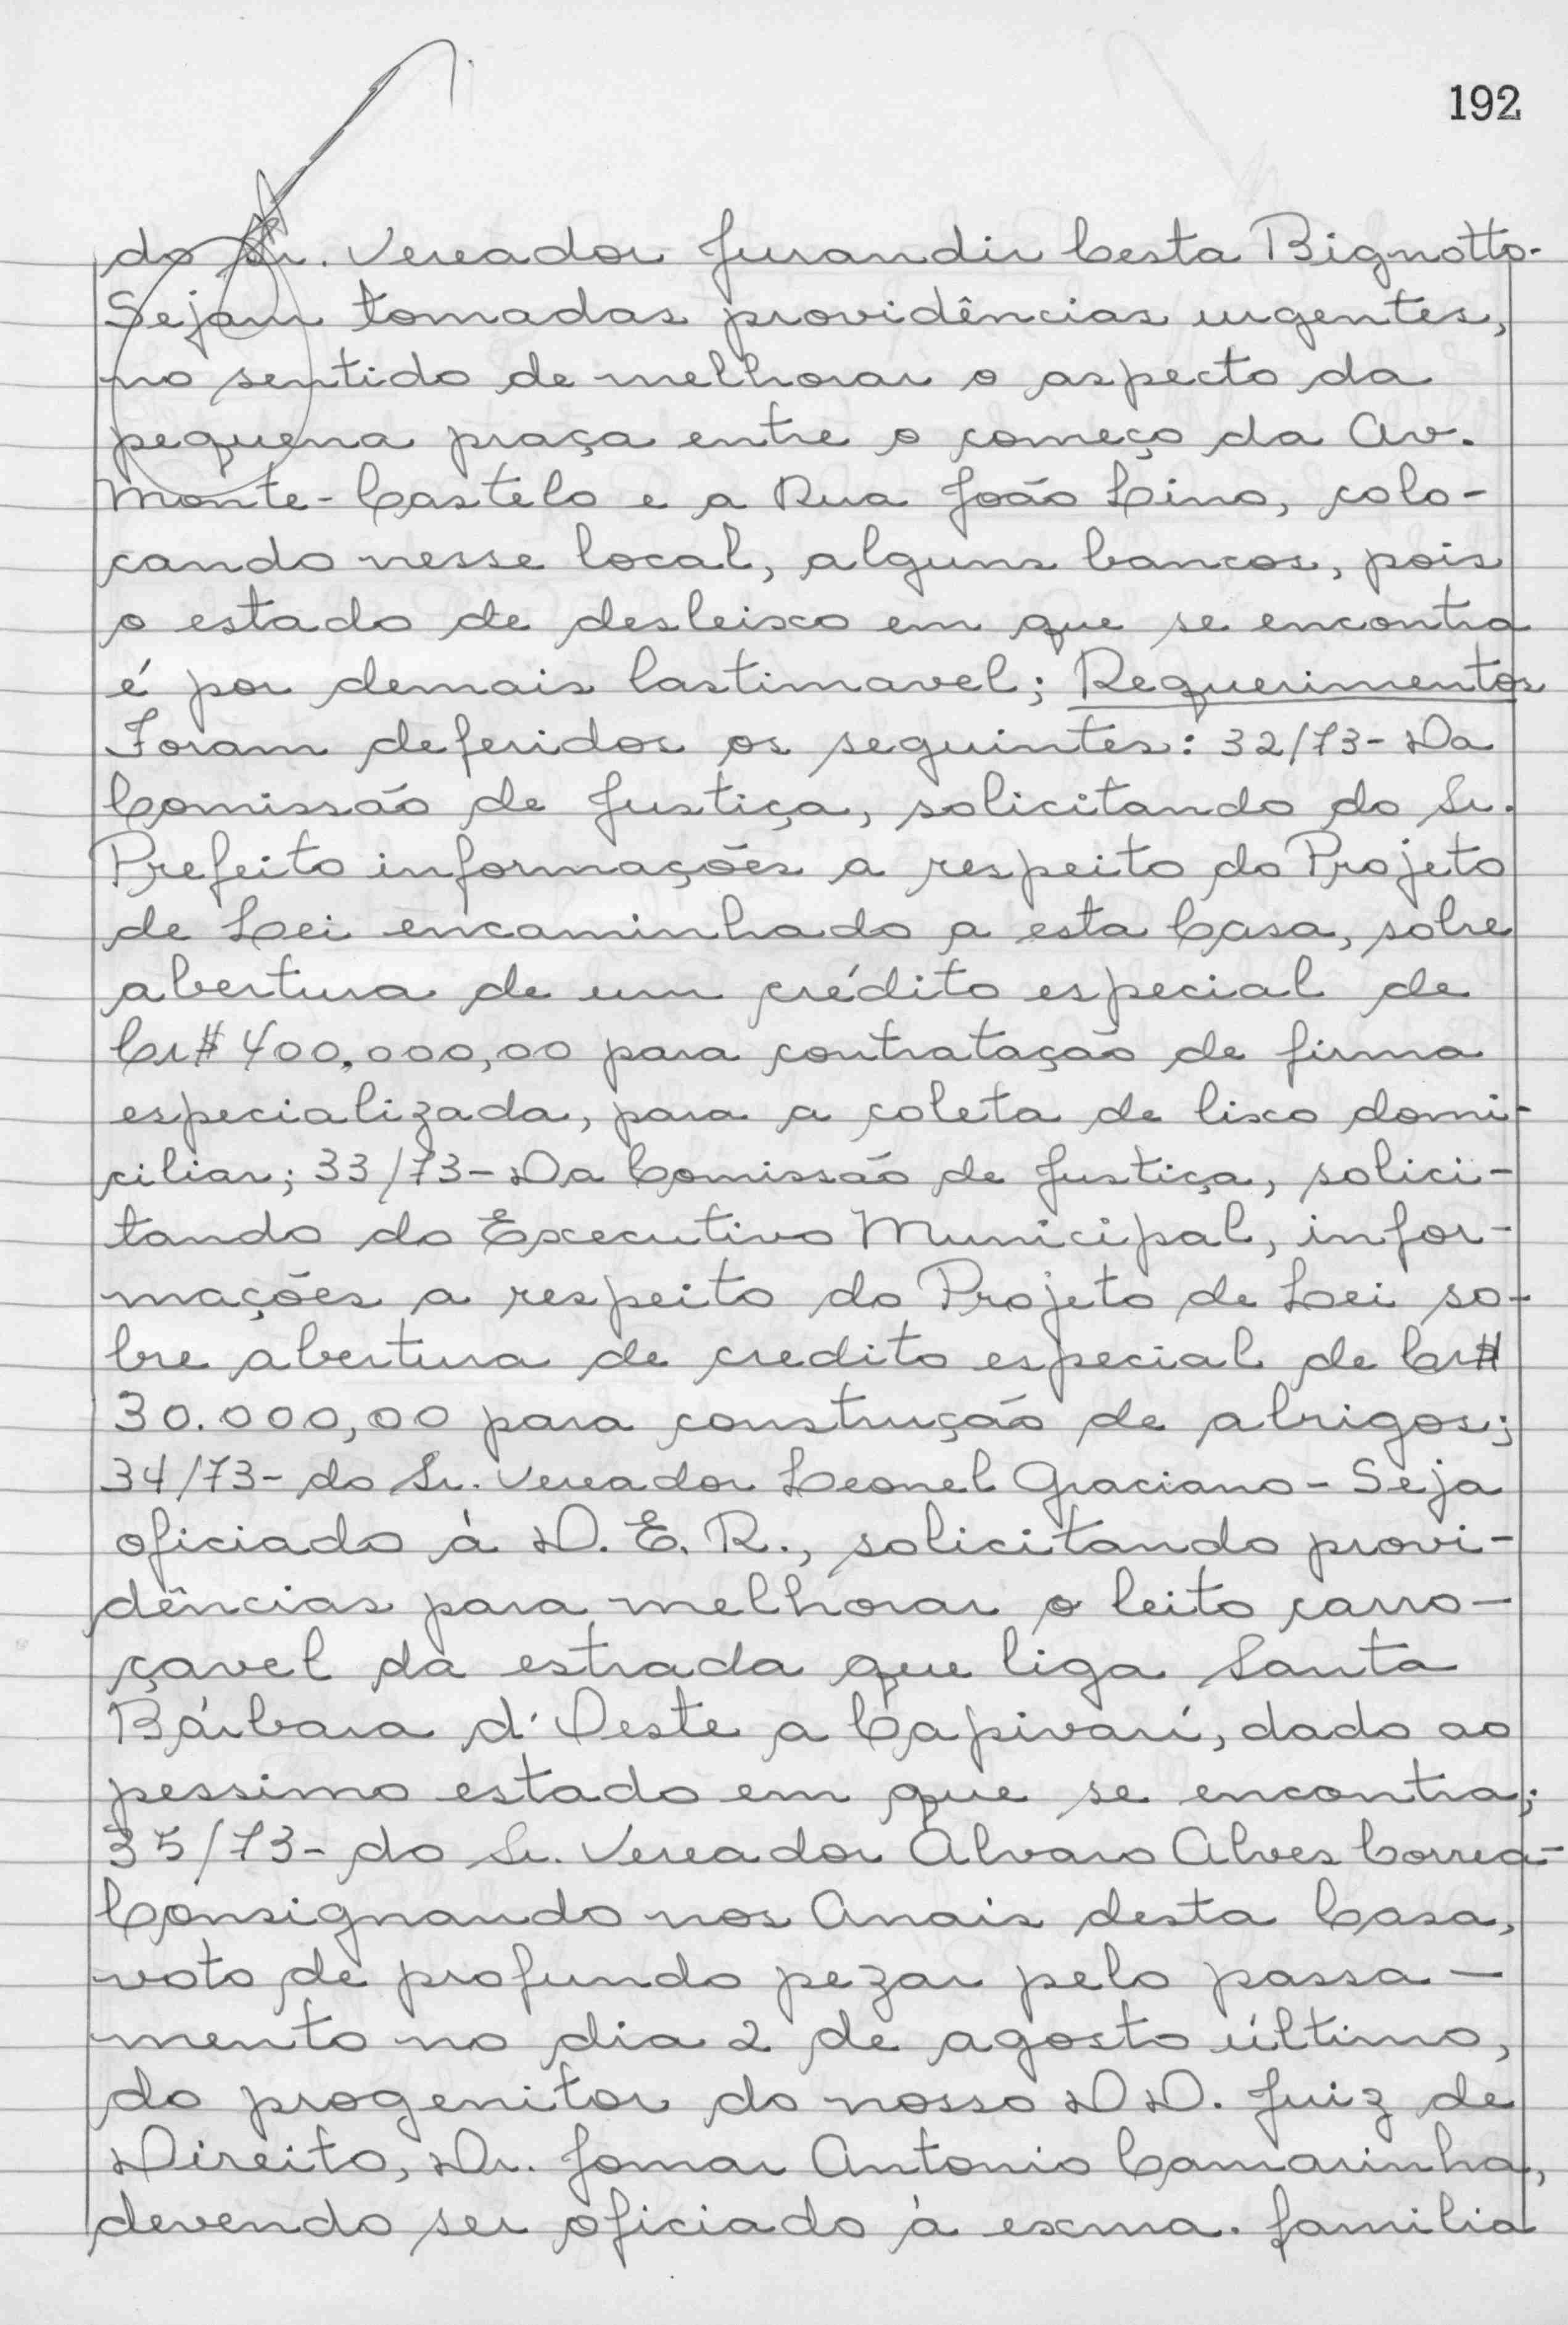 192
do Sr. Vereador Jurandir Cesta Bignotto-
Sejam tomadas providências urgentes,
no sentido de melhorar o aspecto da
pequena praça entre o começo da Av.
Monte-Castelo e a Rua João Lino, colo-
cando nesse local, alguns bancos, pois
o estado de desleixo em que se encontra
é por demais lastimavel; Requerimentos
Foram deferidos os seguintes: 32/73- Da
Comissão de Justiça, solicitando do Sr.
Prefeito informações a respeito do Projeto
de Lei encaminhado a esta Casa, sobre
abertura de um crédito especial de
Cr$ 400.000,00 para contratação de firma
especializada, para a coleta de lixo domi-
ciliar; 33/73- Da Comissão de Justiça, solici-
tando do Executivo Municipal, infor-
mações a respeito do Projeto de Lei so-
bre abertura de credito especial de Cr$
30.000,00 para construção de abrigos;
34/73- do Sr. Vereador Leonel Graciano- Seja
oficiado à D. E. R., solicitando provi-
dências para melhorar o leito carro-
çavel da estrada que liga Santa
Bárbara d'Oeste a Capivarí, dado ao
pessimo estado em que se encontra;
35/73- do Sr. Vereador Alvaro Alves Correa-
Consignando nos Anais desta Casa,
voto de profundo pezar pelo passa-
mento no dia 2 de agosto último,
do progenitor do nosso DD. Juiz de
Direito, Dr. Jomar Antonio Camarinha,
devendo ser oficiado à exma. familia